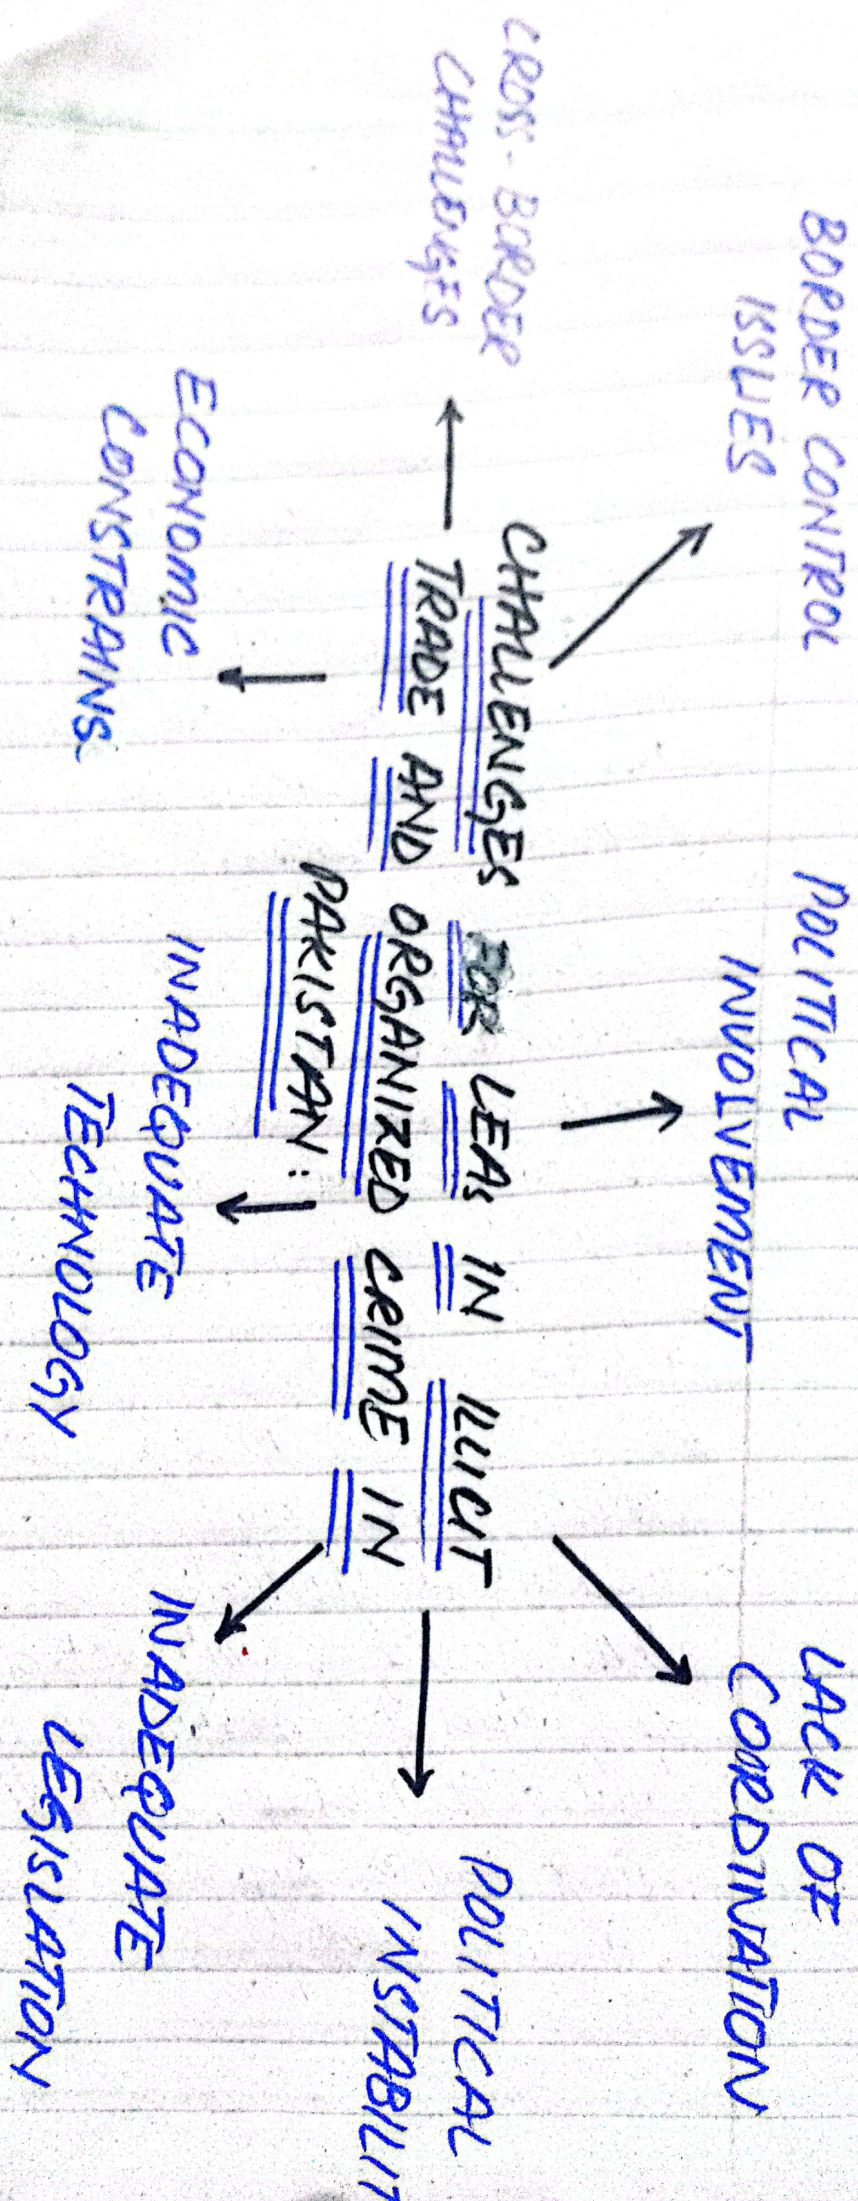 BORDER CONTROL
ISSUES
POLITICAL
INVOLVEMENT
LACK OF
COORDINATION
CROSS-BORDER
CHALLENGES
CHALLENGES FOR LEAs IN ILLICIT
TRADE AND ORGANIZED CRIME IN
PAKISTAN:
POLITICAL
INSTABILIT
ECONOMIC
CONSTRAINS.
INADEQUATE
TECHNOLOGY
INADEQUATE
LEGISLATION